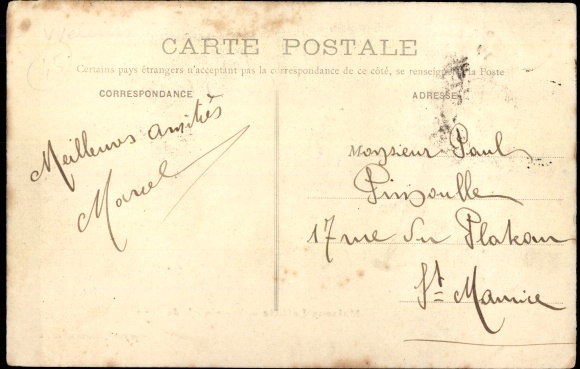 CARTE POSTALE
Certains pays étrangers n'acceptant pas la correspondance de ce côté, se renseigner à la Poste
CORRESPONDANCE
ADRESSE
Meilleures amitiés
Marcel
Monsieur Paul
17 rue du Plateau
St Maurice